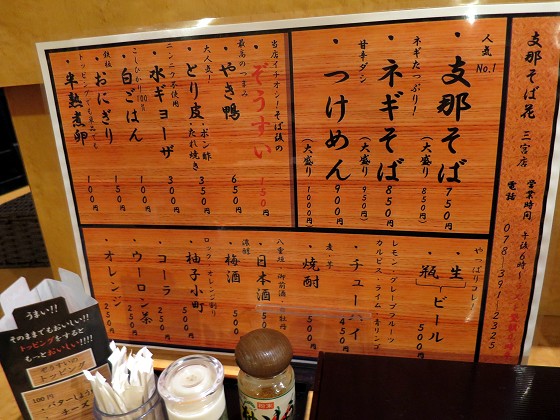 支那そば花 三宮店
営業時間 午後6時〜
電話 078-391-2325
人気No.1
・支那そば 750円
(大盛り 850円)
ネギたっぷり!
・ネギそば 850円
(大盛り 950円)
甘辛ダシ
・つけめん 900円
(大盛り 1000円)
当店イチオシ!そば後の
・ぞうすい 150円
最高のつまみ
・やき鴨 650円
大人気!
・とり皮 ・ポン酢 ・たれ焼き 350円
ニンニク不使用
・水ギョーザ 300円
こしひかり100%
・白ごはん 150円
・おにぎり 100円
・半熟煮卵 100円
やっぱりコレ!
・生 ・瓶 ビール 500円
レモン・グレープフルーツ
カルピス・ライム・オレンジ
・チューハイ 450円
麦・芋
・焼酎 500円
・日本酒
濃醇
・梅酒 500円
ロック・オレンジ割り
・柚子小町
・コーラ 250円
・ウーロン茶 250円
・オレンジ 250円
うまい!!
そのままでもおいしい!!
トッピングをすると
もっとおいしい!!!!
ぞうすいの
トッピング
100円
・バター
チーズ